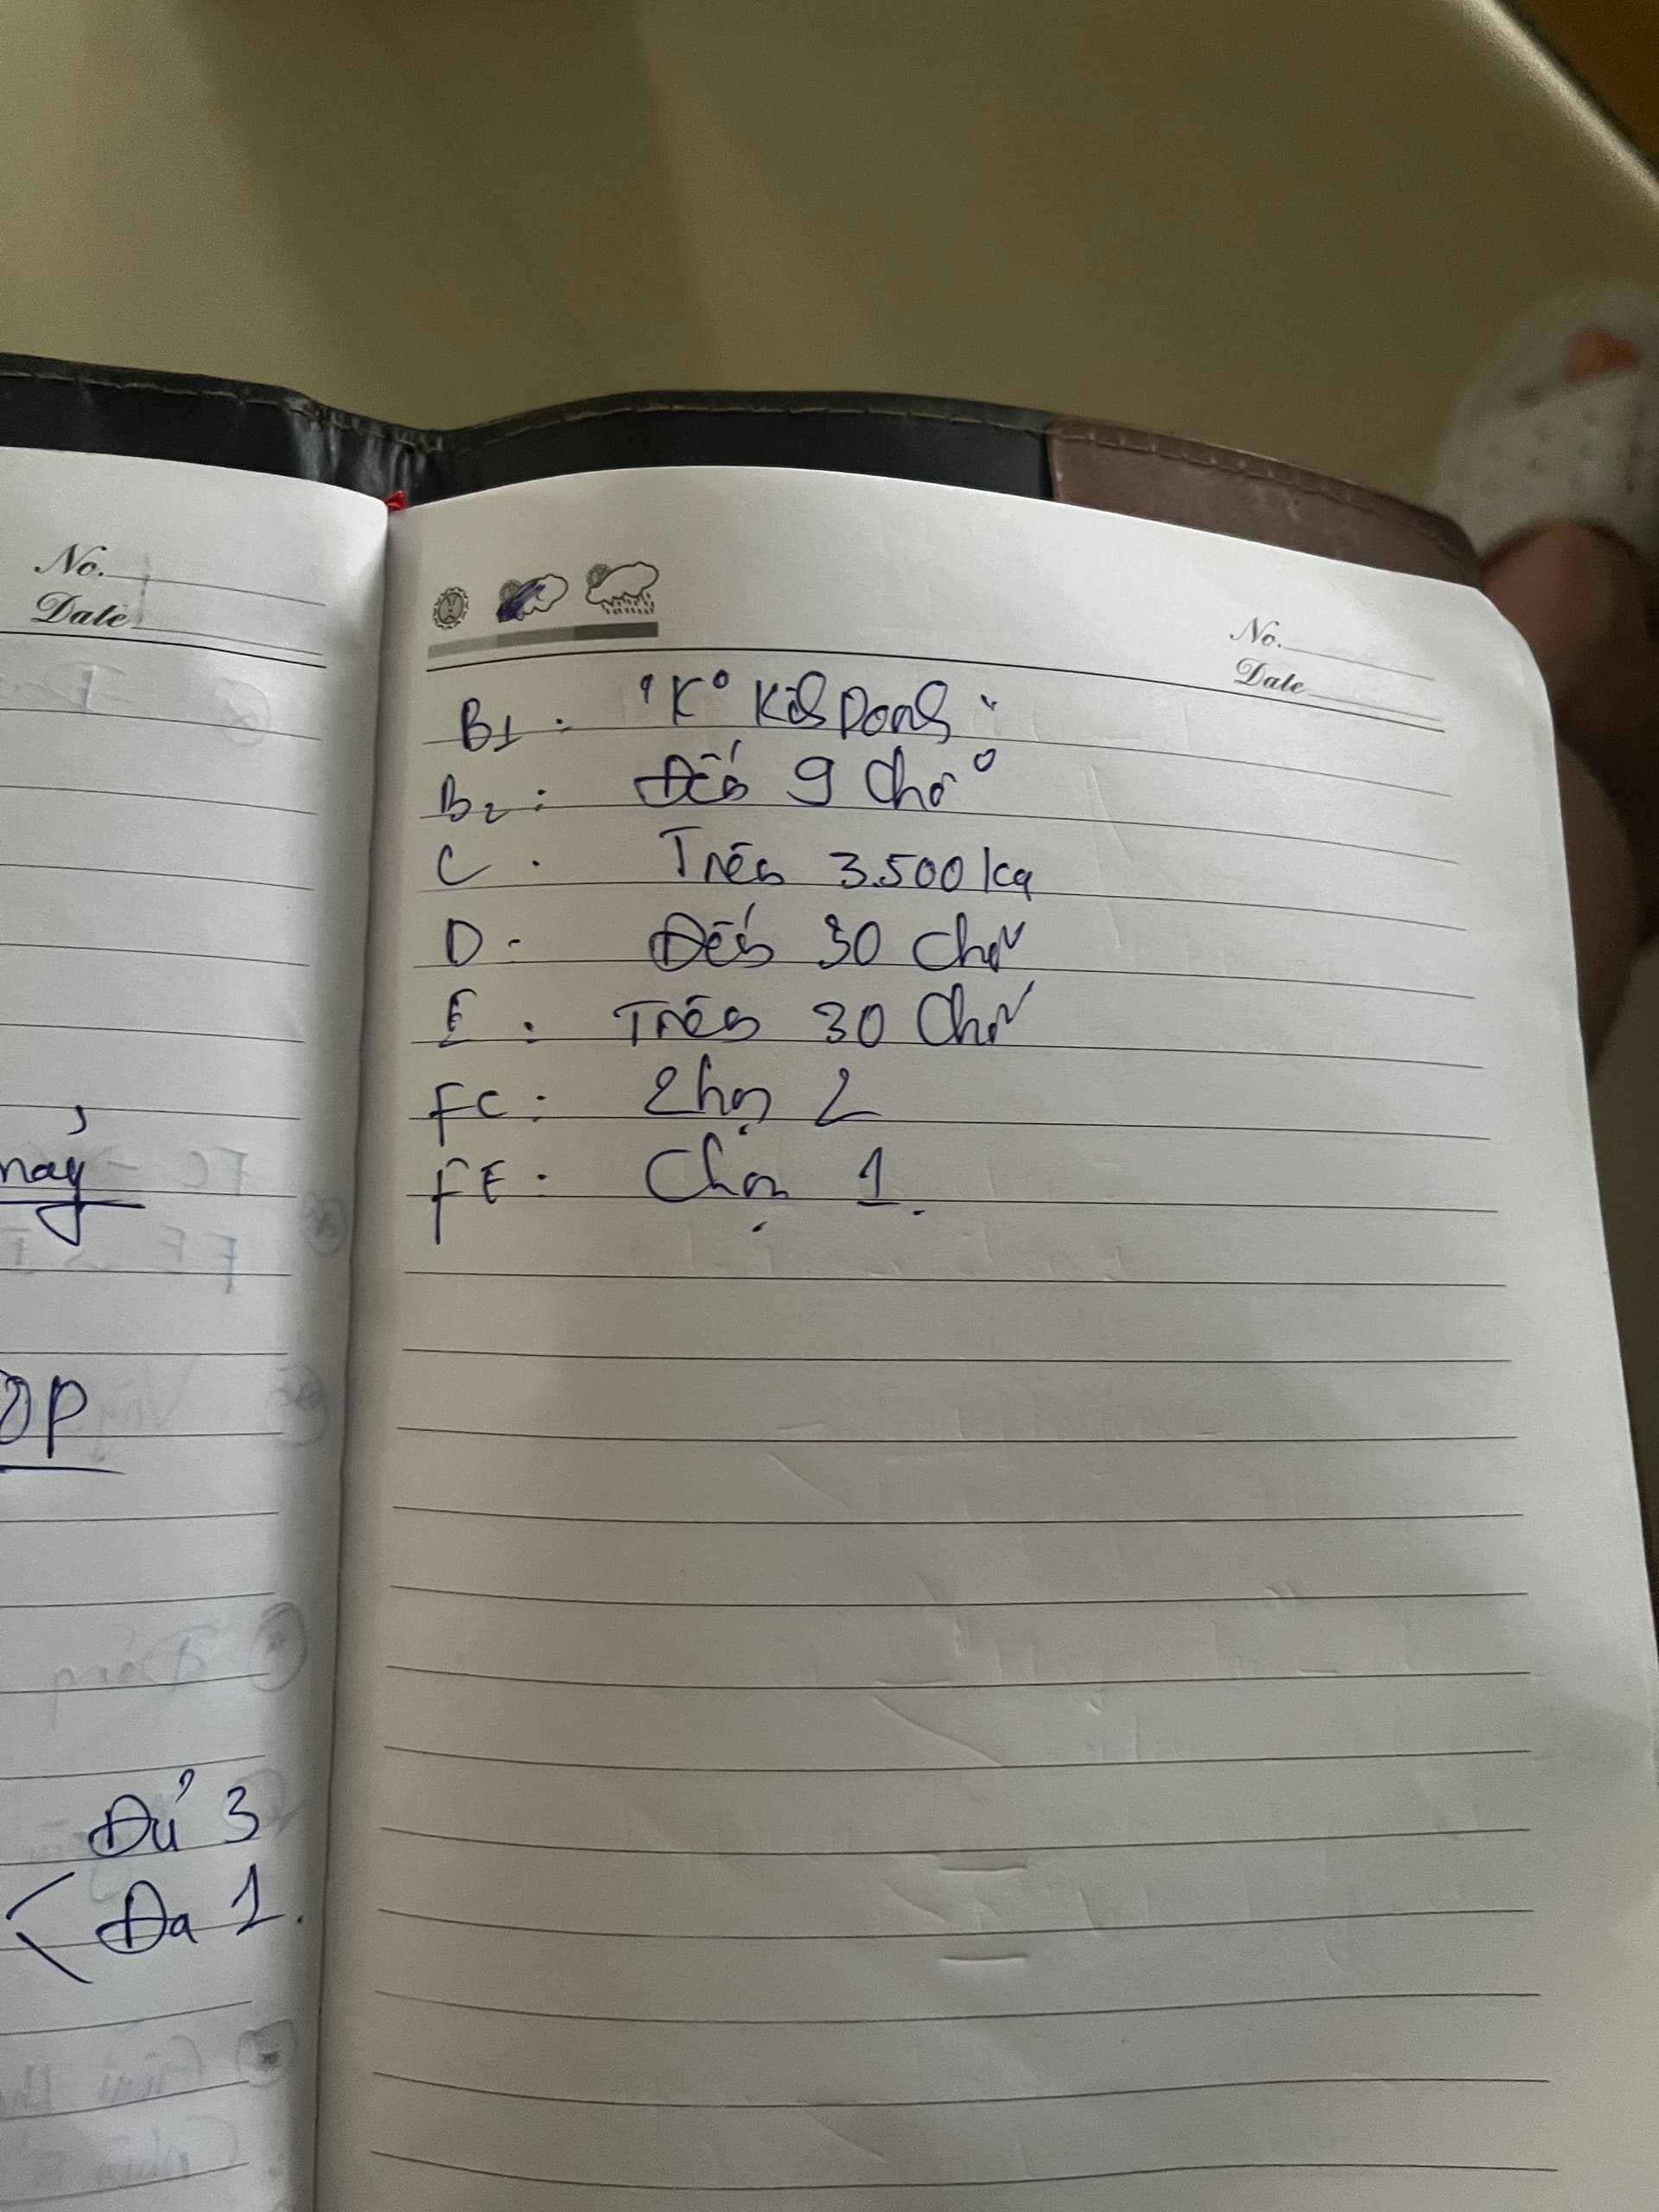 No.
Date
này
OP
Đủ 3
< Đa 1.
No.
Date
B1: "K° Kinh Doanh"
B2: Đến 9 Chỗ
C. Trên 3.500 kg
D- Đến 30 Chỗ
E. Trên 30 Chỗ
FC: Chọn 2
FE: Chọn 1.